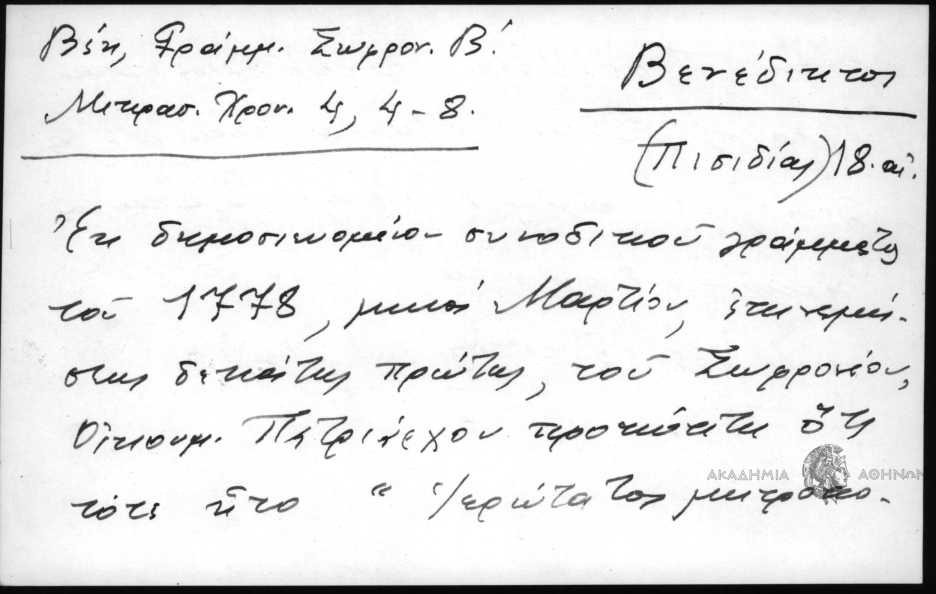 Βέη, Γράμμ. Σωφρον. Β΄.
Μικρασ. Χρον. 4, 4-8.
Βενέδικτος
(Πισιδίας) 18. αἰ.
Ἐκ δημοσιευομένου συνοδικοῦ γράμματος
τοῦ 1778, μηνὸς Μαρτίου, ἐπινεμή-
σεως δεκάτης πρώτης, τοῦ Σωφρονίου,
Οἰκουμ. Πατριάρχου προκύπτει ὅτι
τότε ἦτο “ ἱερώτατος μητροπο-
ΑΚΑΔΗΜΙΑ ΑΘΗΝΩΝ